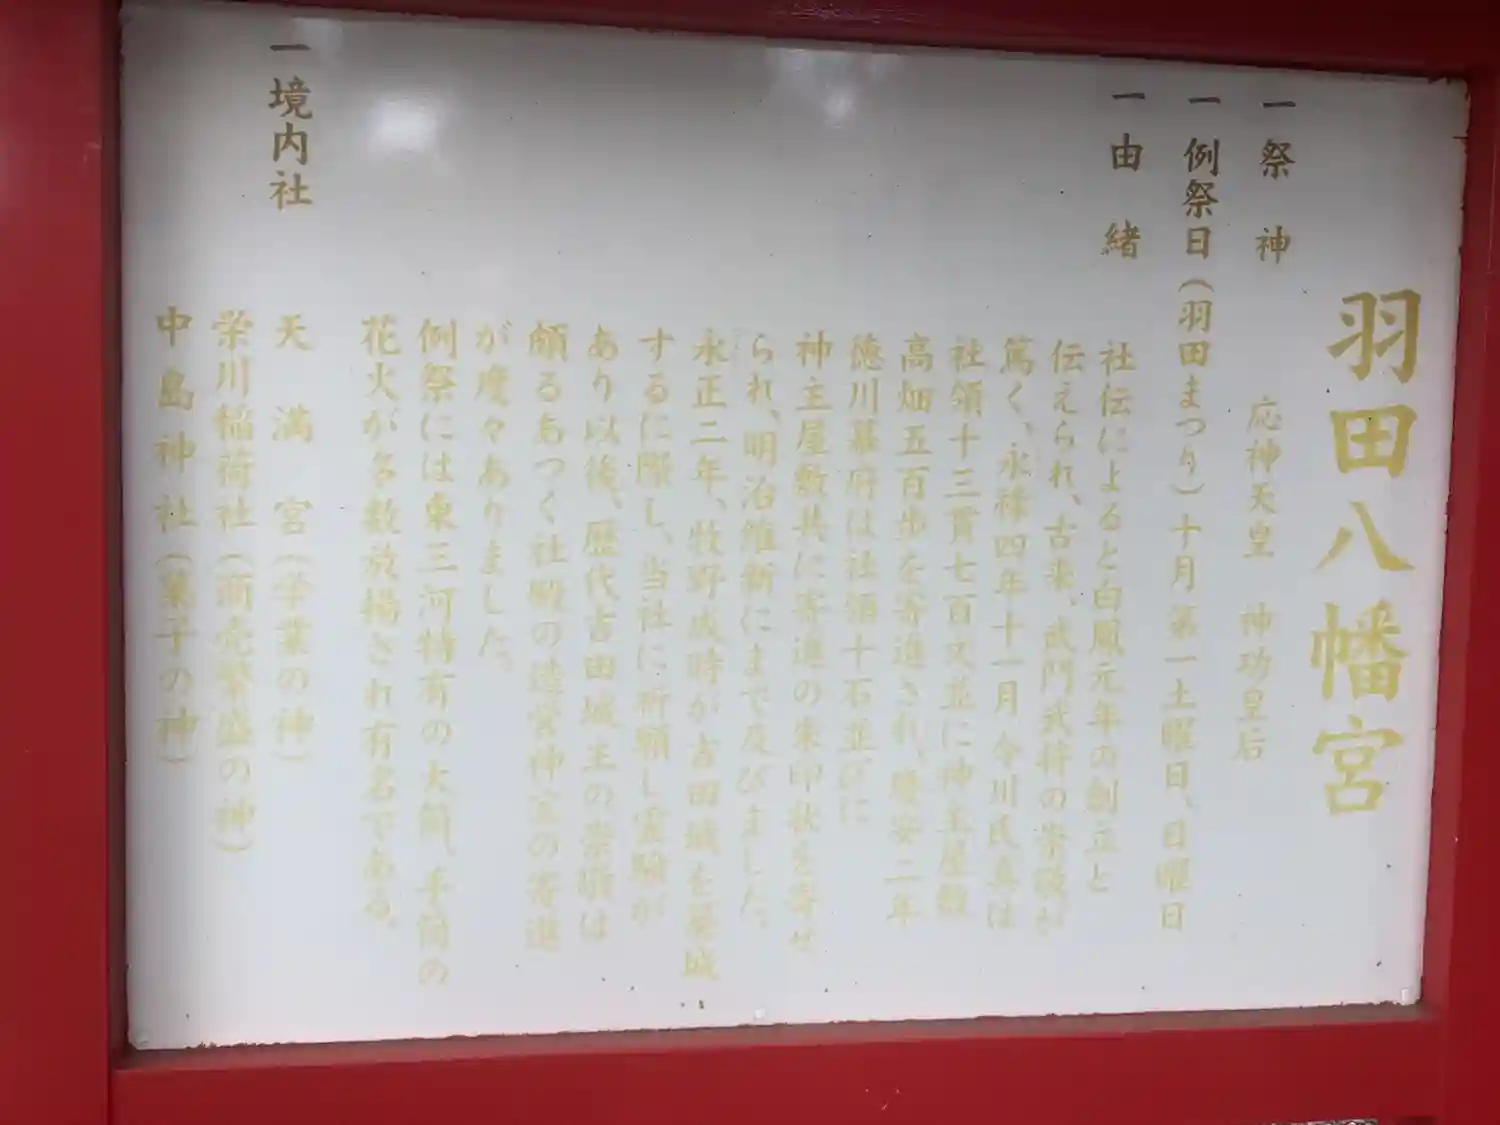 羽田八幡宮
一 祭 神 応神天皇 神功皇后
一 例祭日(羽田まつり)十月第一土曜日、日曜日
一 由 緒
社伝によると白鳳元年の創立と
伝えられ、古来、武門武将の崇敬が
篤く、永禄四年十一月今川氏真は
社領十三貫七百文並に神主屋敷
高畑五百歩を寄進され、慶安二年
徳川幕府は社領十石並びに
神主屋敷共に寄進の朱印状を寄せ
られ、明治維新にまで及びました。
永正二年、牧野成時が吉田城を築城
するに際し、当社に祈願し霊験が
あり以後、歴代吉田城主の崇敬は
頗るあつく社殿の造営神宝の寄進
が度々ありました。
例祭には東三河特有の大筒、手筒の
花火が多数放揚され有名である。
一 境内社
天 満 宮(学業の神)
栄川稲荷社(商売繁盛の神)
中島神社(菓子の神)